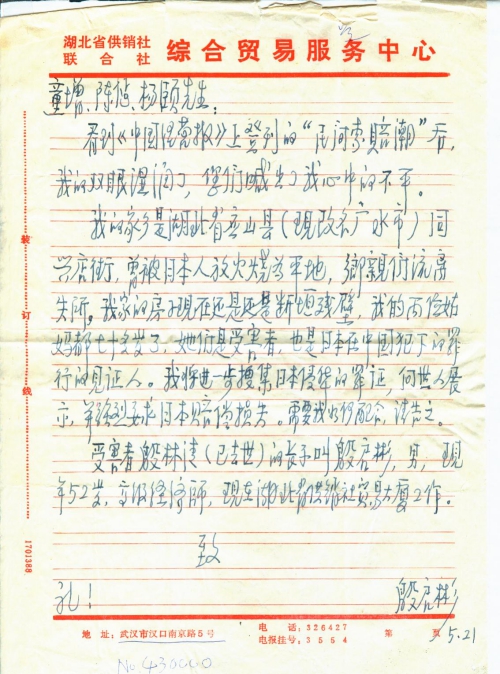 湖北省供销社
联合社
综合贸易服务中心
童增、陈健、杨颐先生：
看到《中国》上登刊的“民间索赔潮”后，
我的双眼湿润了，您们喊出了我心中的不平。
我的家乡是湖北省应山县（现改名广水市）
兴店街，曾被日本人放火烧为平地，乡亲们流离
失所。我家的房子现在还是还是断垣残壁，我的两位姑
妈都七十多岁了，她们是受害者，也是日本在中国犯下的罪
行的见证人。我将进一步搜集日本侵华的罪证，向世人展
示，并强烈要求日本赔偿损失。需要我如何配合，请告之。
受害者殷林（已去世）的长子叫殷启彬，男，现
年52岁，高级经济师，现在湖北省供销社贸易大厦工作。
致
礼！
殷启彬
5.21
装订线
1701388
地 址：武汉市汉口南京路5号
电 话：326427
电报挂号：3554
第 页
No.430000